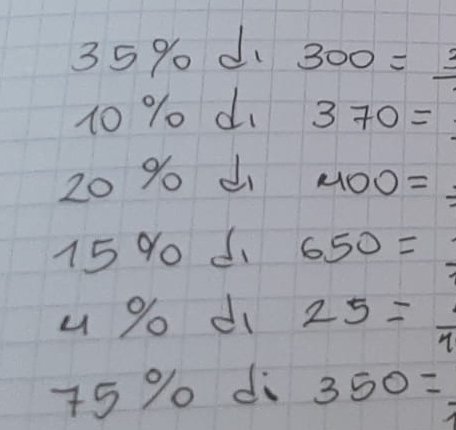 35% di 300 = 3
10% di 370 =
20% di 400 =
15% di 650 =
4% di 25 =
75% di 350 =